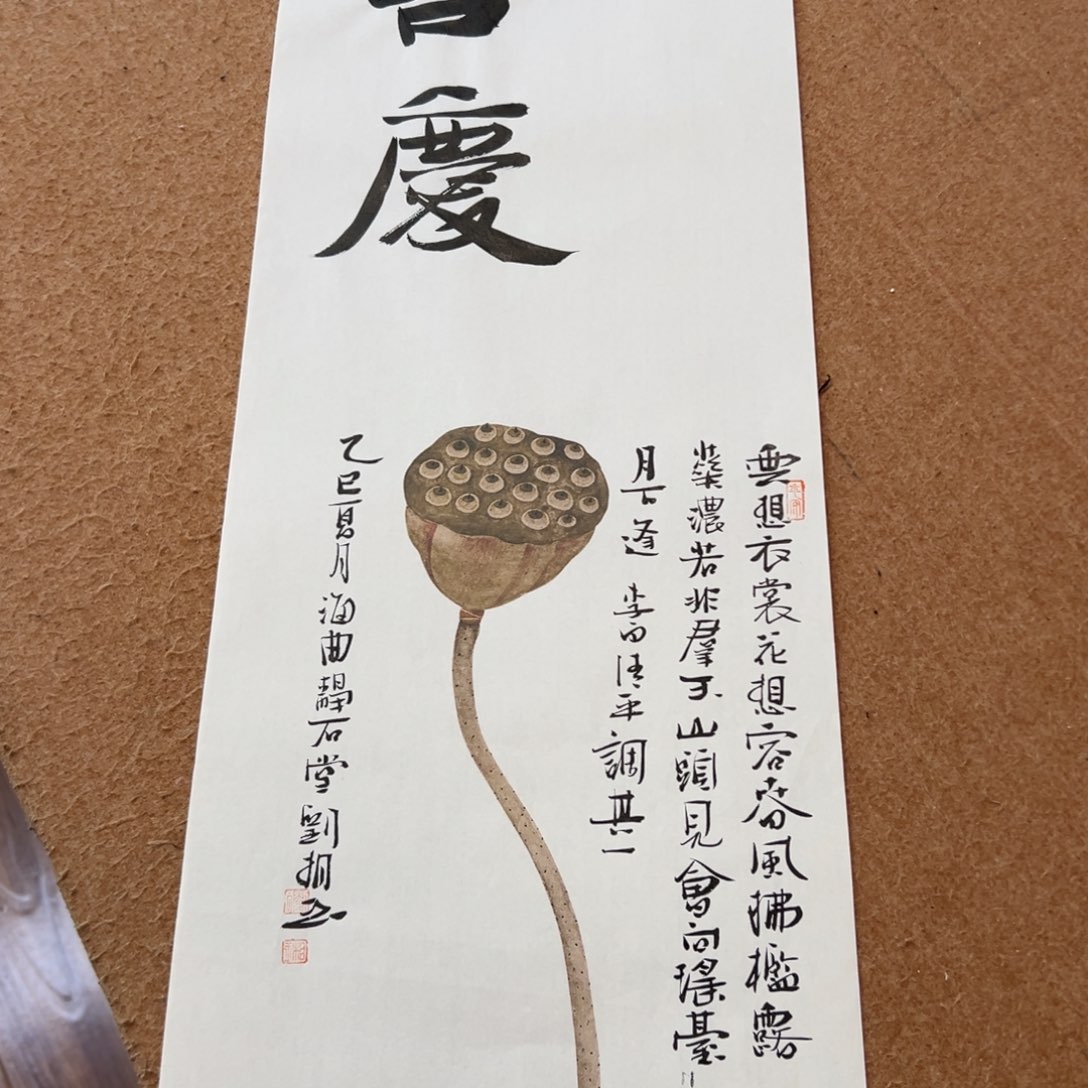 慶
雲想衣裳花想容春風拂檻露
華濃若非羣玉山頭見會向瑤臺
月下逢 李白清平調其一
乙巳夏月海曲石堂劉